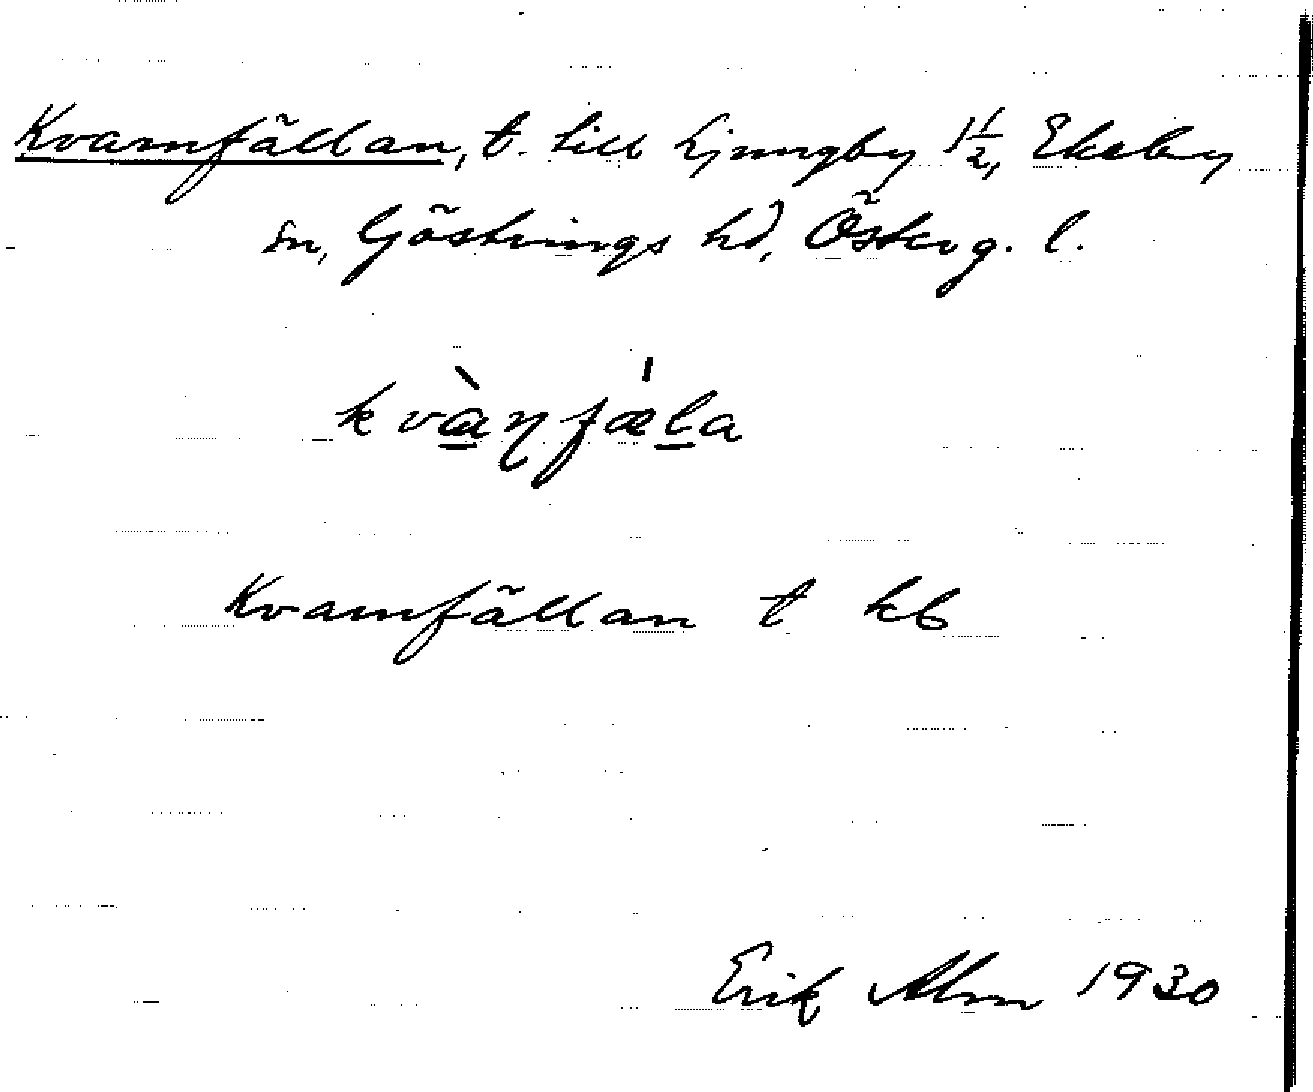 Kvarnfällan, t. till Ljungby 1½, Ekeby
sn, Göstrings hd, Österg. l.
kvàɳfǽla
Kvarnfällan t kb
Erik Alm 1930